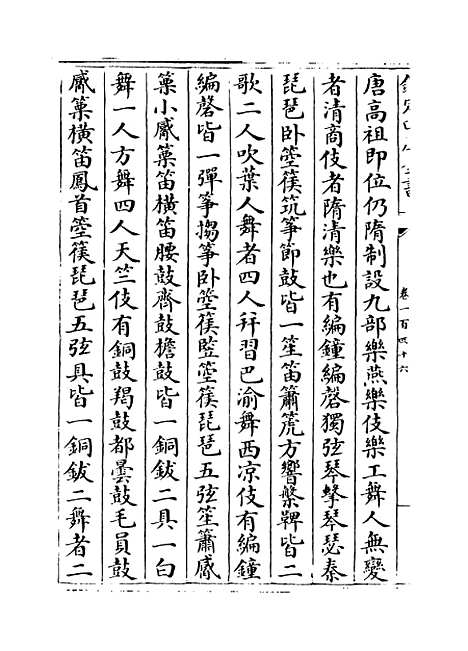 唐高祖即位仍隋制設九部樂燕樂伎樂工舞人無變
者清商伎者隋清樂也有編鐘編磬獨弦琴擊琴瑟秦
琵琶卧箜篌筑箏節鼓皆一笙笛簫篪方響槃鞞皆二
歌二人吹葉人舞者四人幷習巴渝舞西凉伎有編鐘
編磬皆一彈箏搊箏卧箜篌豎箜篌琵琶五弦笙簫觱
篥小觱篥笛橫笛腰鼓齊鼓檐鼓皆一銅鈸二具一白
舞一人方舞四人天竺伎有銅鼓羯鼓都曇鼓毛員鼓
觱篥橫笛鳳首箜篌琵琶五弦具皆一銅鈸二舞者二
卷一百四十六